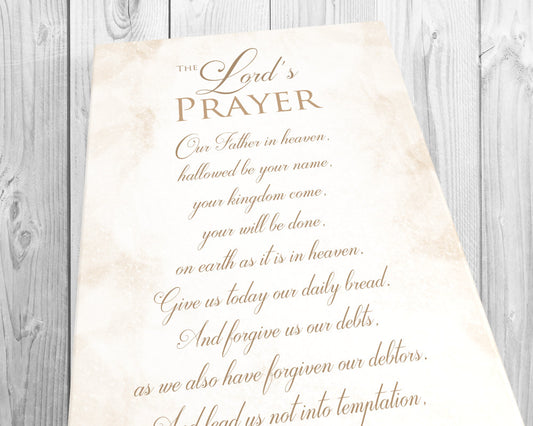 THE Lord's
PRAYER
Our Father in heaven,
hallowed be your name,
your kingdom come,
your will be done,
on earth as it is in heaven.
Give us today our daily bread.
And forgive us our debts,
as we also have forgiven our debtors.
And lead us not into temptation,